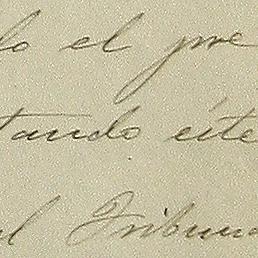 lo el pre
tando éste
al Tribuna